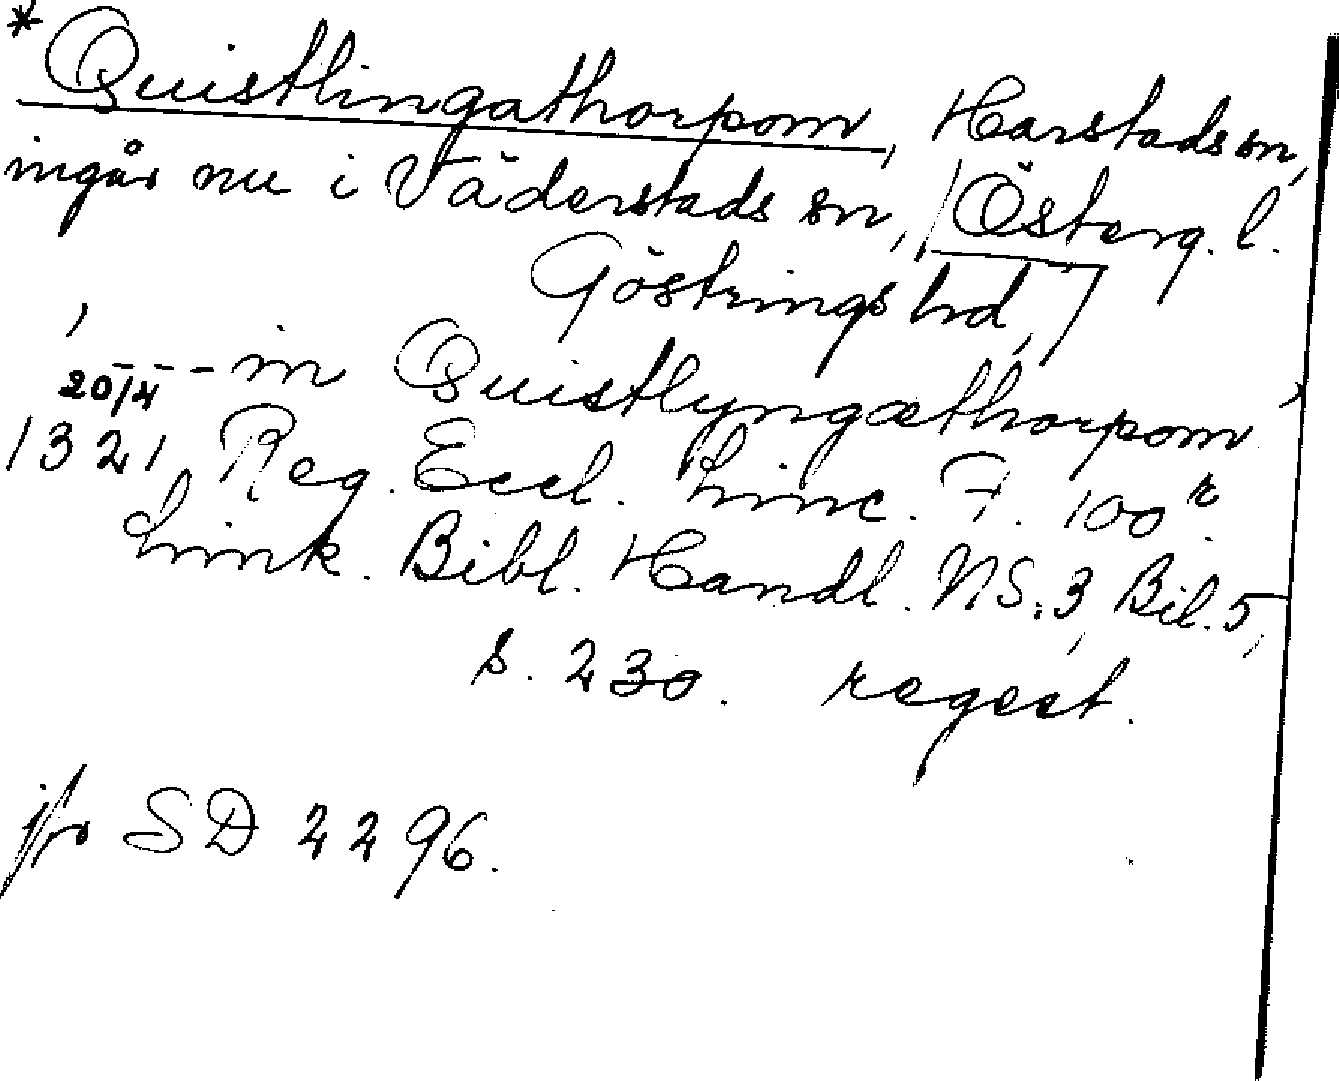 * Quistlingathorpom, Harstads sn,
ingår nu i Väderstads sn, Österg. l.
Göstrings hd,
20/4 - in Quistlyngæthorpom
1321, Reg. Eccl. Linc. F. 100 r.
Link. Bibl. Handl. NS:3, Bil. 5,
s. 230. regest.
jfr SD 2296.